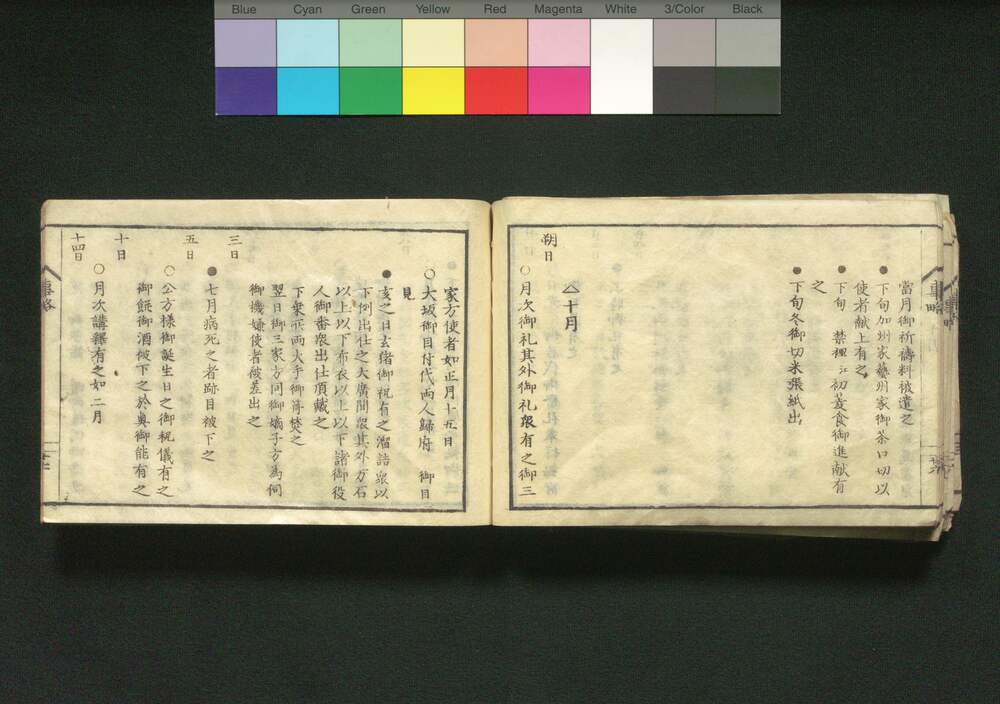 Blue Cyan Green Yellow Red Magenta White 3/Color Black
當月御祈禱料被遣之
●下旬加州家藝州家御茶口切以
使者献上有之
●下旬 禁裡江初菱食御進献有
之
●下旬冬御切米張紙出
△十月
朔日
○月次御礼其外御礼衆有之御三
家方使者如正月十五日
○大坂御目付代両人歸府 御目
見
●亥之日玄猪御祝有之溜詰衆以
下例出仕之大廣間衆其外万石
以上以下布衣以上以下諸御役
人御番衆出仕頂戴之
下乗所両大手御篝焚之
翌日御三家方同御嫡子方為伺
御機嫌使者被差出之
三日
●七月病死之者跡目被下之
五日
○公方様御誕生日之御祝儀有之
御餅御酒被下之於奥御能有之
十日
○月次講釋有之如二月
十四日